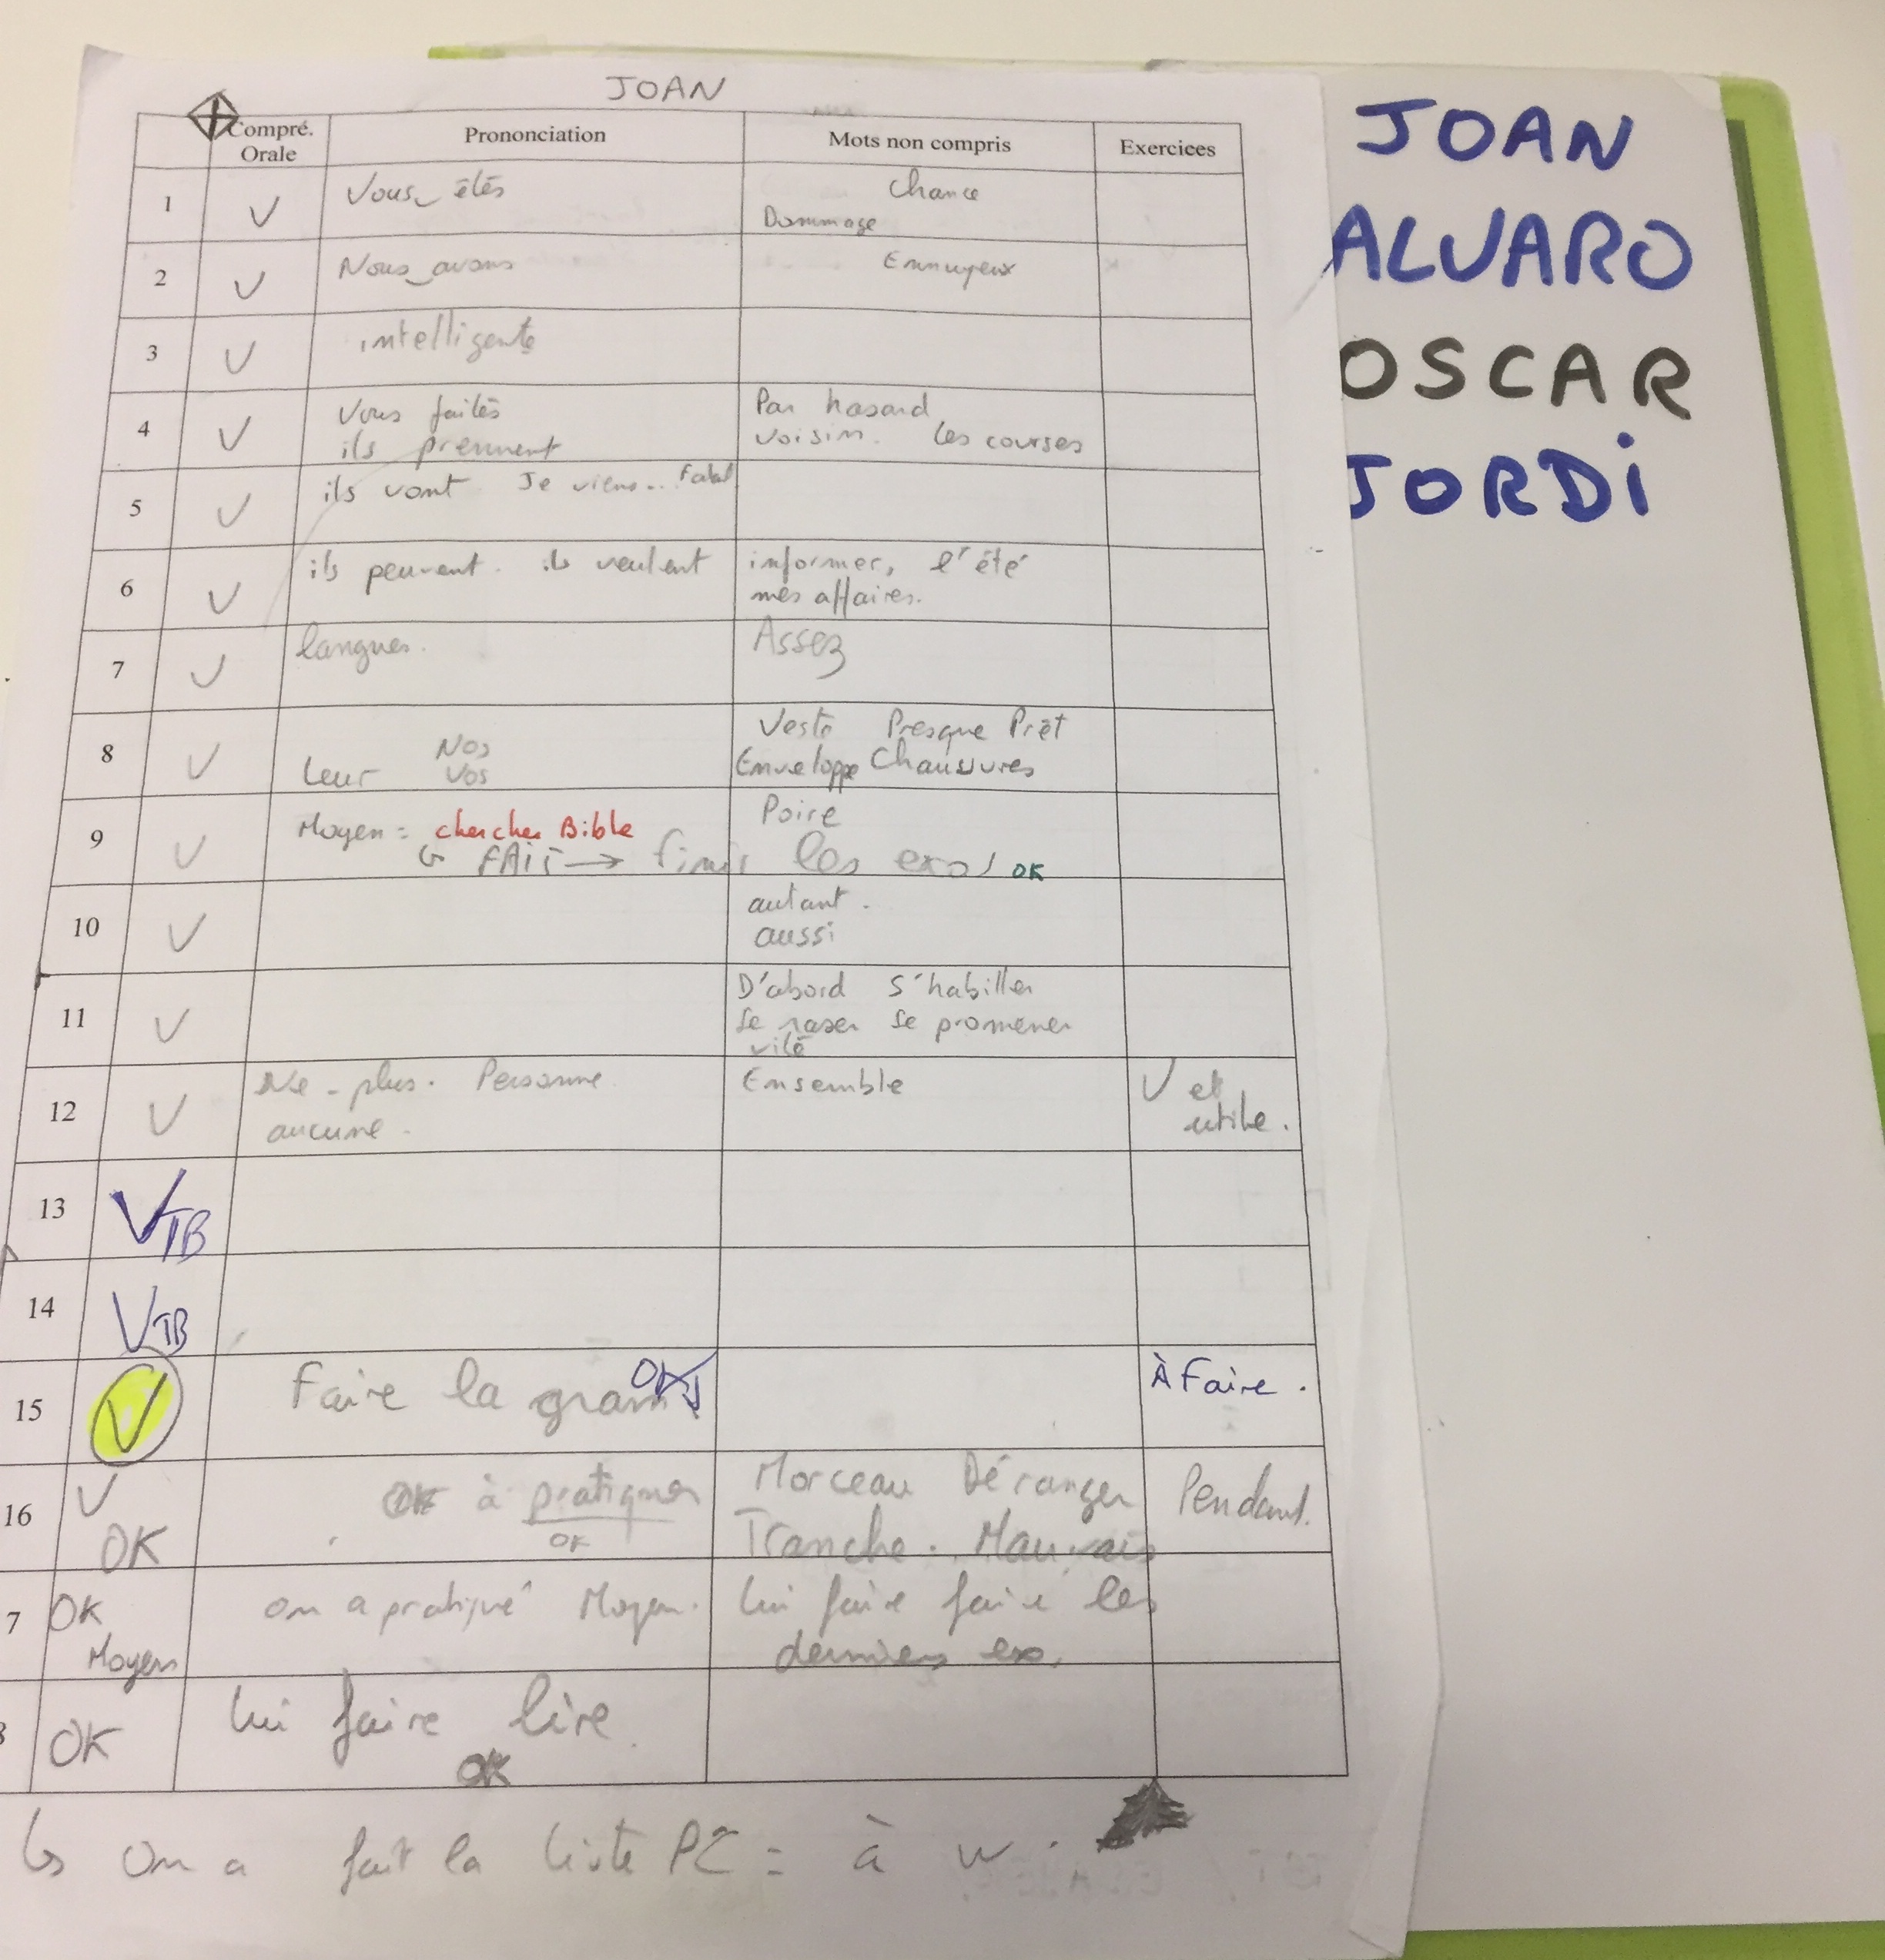 JOAN
Compré. Orale Prononciation Mots non compris Exercices
1 V Vous êtés Chance
Dommage
2 V Nous avons Ennuyeux
3 V intelligente
4 V Vous faites Par hasard
ils prennent voisin. les courses
5 V ils vont Je viens..
6 V ils peuvent. ils veulent informer, l'été
mes affaires.
7 V langues. Assez
8 V Nos Veste Presque Prêt
Leur Vos Enveloppe Chaussures
9 V Moyen = chercher Bible Poire
↳ FAIT → finir les exos OK
10 V autant.
aussi
11 V D'abord S'habiller
Se raser Se promener
vite
12 V Ne - plus. Personne Ensemble V et
aucune. utile.
13 V TB
14 V TB
15 V Faire la gram OK À Faire.
16 V OK à pratiquer Morceau Déranger Pendant.
OK OK Tranche. Mauvais
7 OK on a pratiqué Moyen. lui faire faire les
Moyen derniers ex.
8 OK lui faire lire
OK
↳ On a fait la liste PC = à w.
JOAN
ALVARO
OSCAR
JORDi